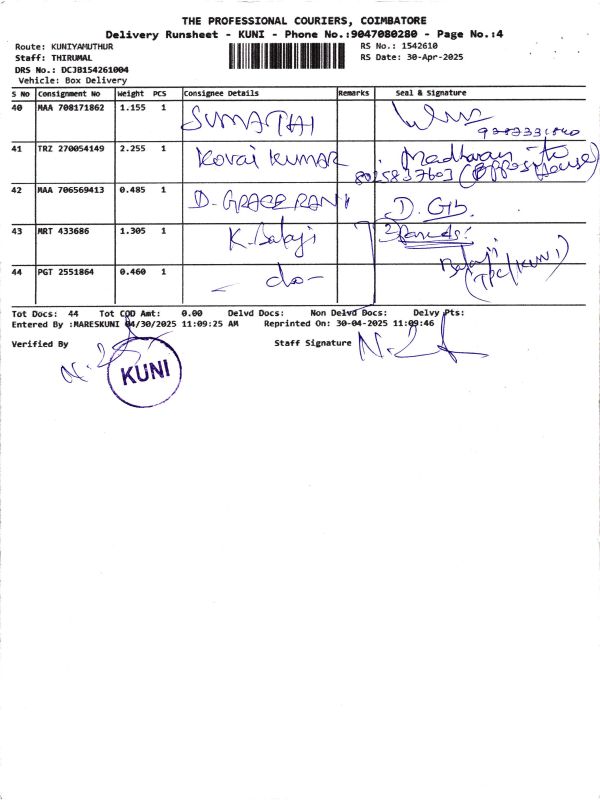 THE PROFESSIONAL COURIERS, COIMBATORE
Delivery Runsheet - KUNI - Phone No.:9047080280 - Page No.:4
Route: KUNIYAMUTHUR
RS No.: 1542610
Staff: THIRUMAL
RS Date: 30-Apr-2025
DRS No.: DCJB154261004
Vehicle: Box Delivery
S No Consignment No Weight PCS Consignee Details Remarks Seal & Signature
40 MAA 708171862 1.155 1 SUMATHI
41 TRZ 270054149 2.255 1 Kovai Kumar Madhavan
8025837603 (Opposite House)
42 MAA 706569413 0.485 1 D. GRACE RANI D. Gb.
43 MRT 433686 1.305 1 K. Balaji
Balaji
(TPC/KUNI)
44 PGT 2551864 0.460 1 - do -
Tot Docs: 44 Tot COD Amt: 0.00 Delvd Docs: Non Delvd Docs: Delvy Pts:
Entered By :MARESKUNI 04/30/2025 11:09:25 AM Reprinted On: 30-04-2025 11:09:46
Verified By Staff Signature
KUNI